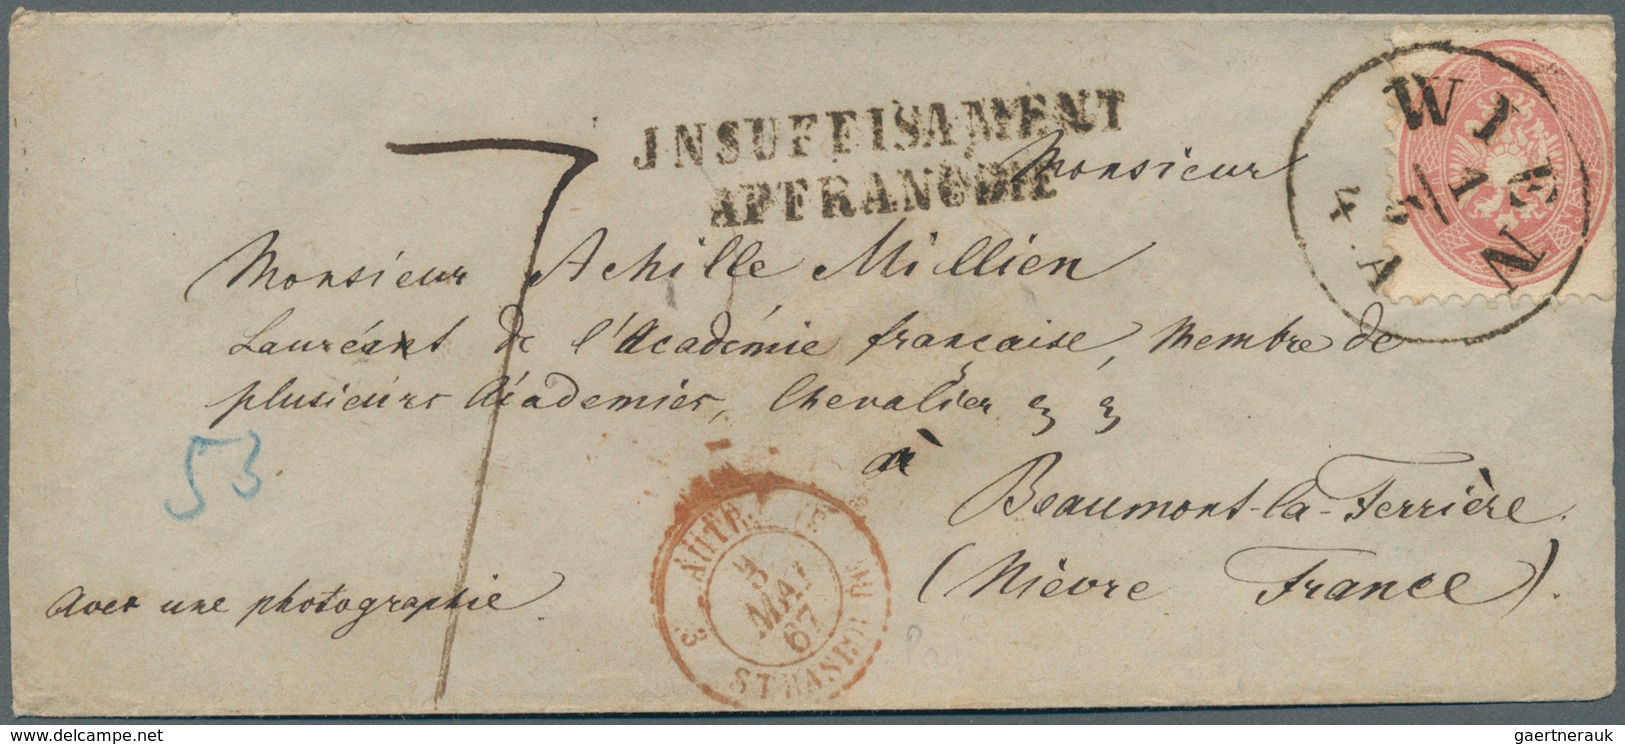 JNSUFFISAMENT
AFFRANCHIE
WIEN
1/5
4.A
7
Monsieur
Monsieur Achille Millien
Lauréat de l'Académie française, Membre de
plusieurs Académies, Chevalier &, &,
à
Beaumont-la-Ferrière
(Nièvre France).
53
Avec une photographie
3 AUTR.
3
MAI
67
STRASB
delcampe.net
gaertnerauk